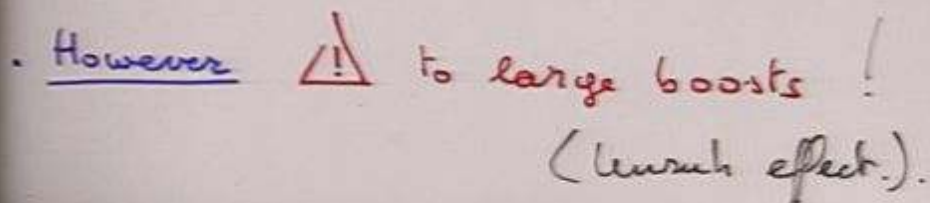 . However ⚠ to large boosts !
(Unruh effect.).